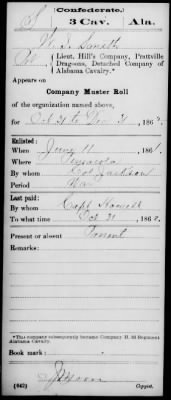 (Confederate.)
S 3 Cav. Ala.
W. S. Smith
Lieut. Hill's Company, Prattville
Dragoons, Detached Company of
Alabama Cavalry.*
Appears on
Company Muster Roll
of the organization named above,
for Oct 31 to Dec 31, 186
Enlisted:
When June 11, 1861.
Where Pensacola
By whom Col Jackson
Period War
Last paid:
By whom Capt Howell
To what time Oct 31, 186
Present or absent Present
Remarks:
*This company subsequently became Company H, 3d Regiment
Alabama Cavalry.
Book mark:
(642) Copyist.